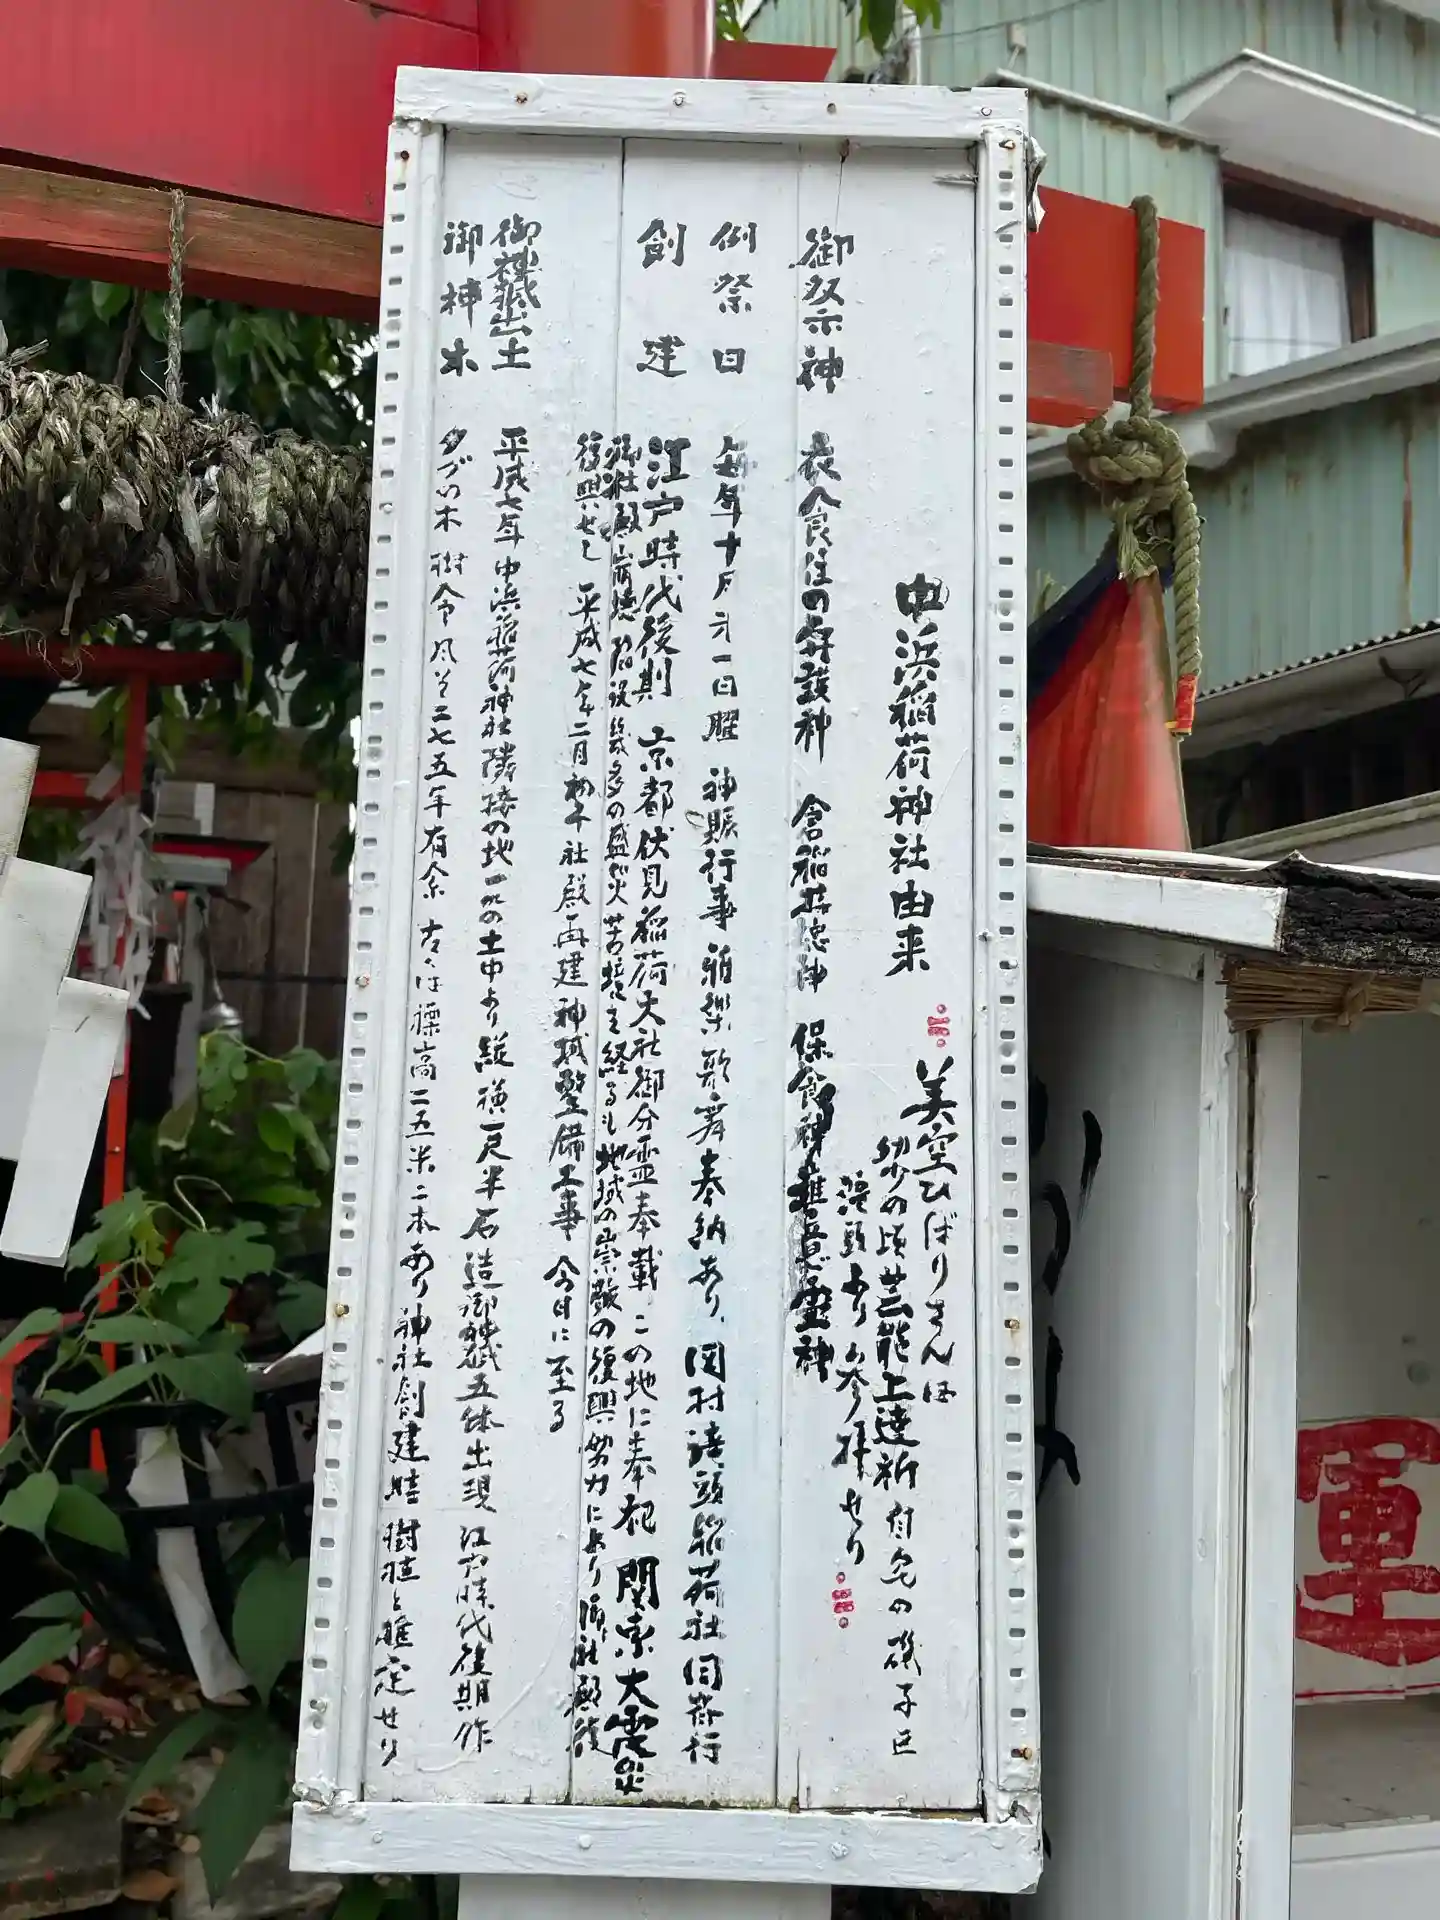 中浜稲荷神社由来
美空ひばりさんは
幼少の頃芸能上達祈 自宅の磯子区
浜頭より参拝せり
御祭神 衣食住の守護神 倉稲荘徳神 保食神 椎意霊神
例祭日 毎年十月第一日曜 神賑行事 雅楽 歌舞奉納あり、岡村浜頭稲荷社同斎行
創建 江戸時代後期 京都伏見稲荷大社御分霊奉載 この地に奉祀 関東大震災
御社殿崩壊 昭和 幾多の盛災 苦境を経るも地域の崇敬の復興努力により 御社殿復
復興せし 平成七年二月初午社殿再建 神域整備工事 今日に至る
御神域出土 平成七年 中浜稲荷神社隣接の地一尺の土中より縦横一尺半石造御神域五体出現 江戸時代後期作
御神木 タブの木 樹令凡そ二七五年有余 古くは標高二五米二本あり神社創建時 樹植と推定せり
運